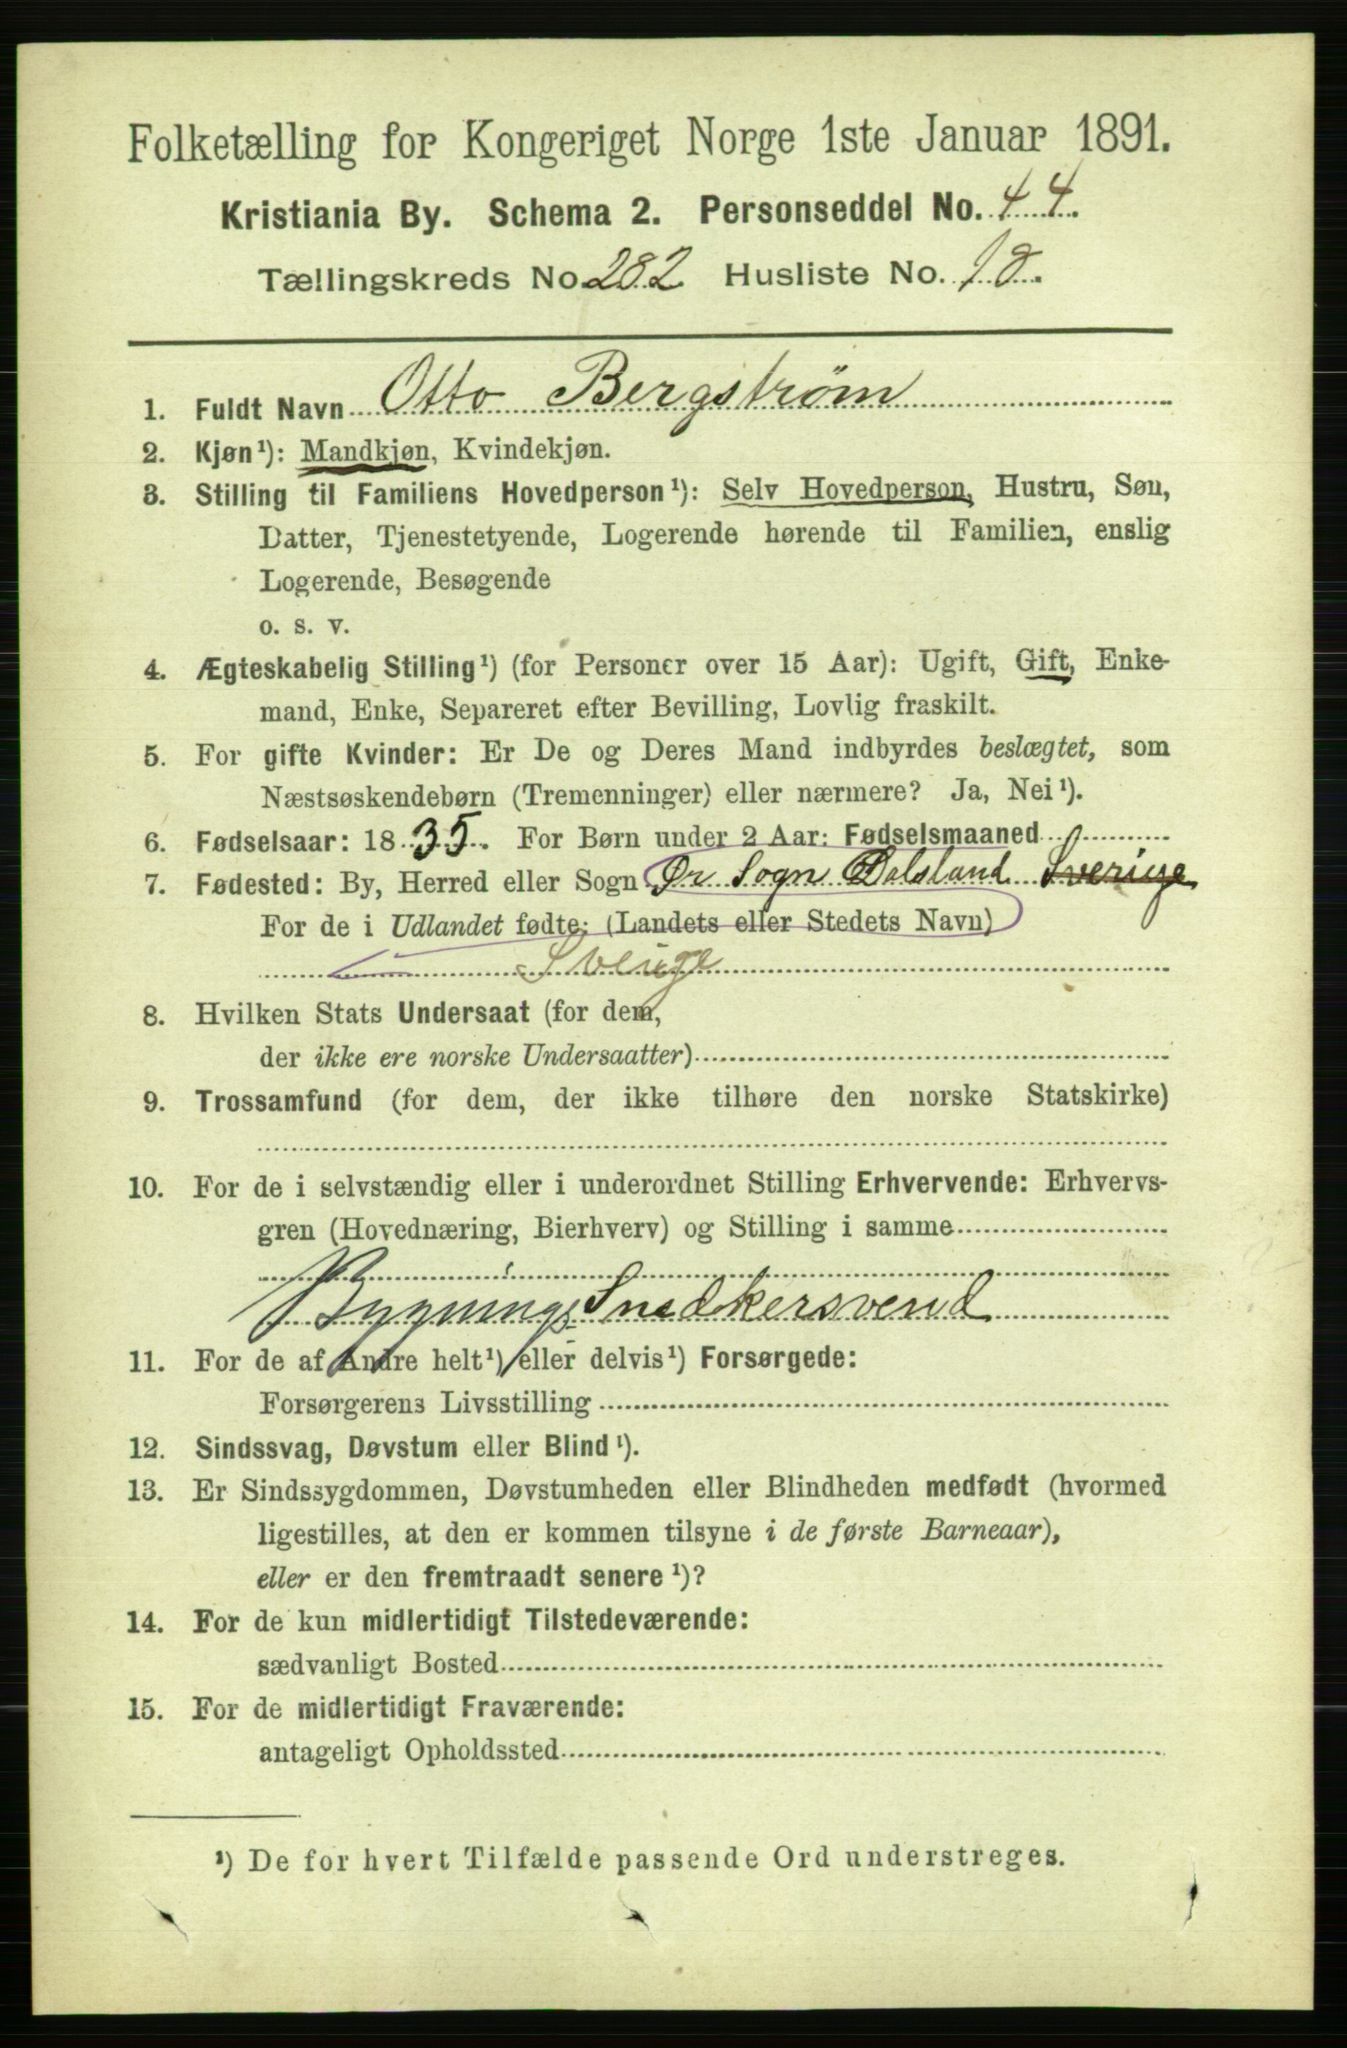 Folketælling for Kongeriget Norge 1ste Januar 1891.
Kristiania By. Schema 2. Personseddel No. 44.
Tællingskreds No. 282 Husliste No. 18.
1. Fuldt Navn Otto Bergstrøm
2. Kjøn¹): Mandkjøn, Kvindekjøn.
3. Stilling til Familiens Hovedperson¹): Selv Hovedperson, Hustru, Søn,
Datter, Tjenestetyende, Logerende hørende til Familien, enslig
Logerende, Besøgende
o. s. v.
4. Ægteskabelig Stilling¹) (for Personer over 15 Aar): Ugift, Gift, Enke-
mand, Enke, Separeret efter Bevilling, Lovlig fraskilt.
5. For gifte Kvinder: Er De og Deres Mand indbyrdes beslægtet, som
Næstsøskendebørn (Tremenninger) eller nærmere? Ja, Nei¹).
6. Fødselsaar: 1835. For Børn under 2 Aar: Fødselsmaaned
7. Fødested: By, Herred eller Sogn Ør Sogn Dalsland Sverige
For de i Udlandet fødte: (Landets eller Stedets Navn)
Sverige
8. Hvilken Stats Undersaat (for dem,
der ikke ere norske Undersaatter)
9. Trossamfund (for dem, der ikke tilhøre den norske Statskirke)
10. For de i selvstændig eller i underordnet Stilling Erhvervende: Erhvervs-
gren (Hovednæring, Bierhverv) og Stilling i samme
Bygnings Snedkersvend
11. For de af Andre helt¹) eller delvis¹) Forsørgede:
Forsørgerens Livsstilling
12. Sindssvag, Døvstum eller Blind¹).
13. Er Sindssygdommen, Døvstumheden eller Blindheden medfødt (hvormed
ligestilles, at den er kommen tilsyne i de første Barneaar),
eller er den fremtraadt senere¹)?
14. For de kun midlertidigt Tilstedeværende:
sædvanligt Bosted
15. For de midlertidigt Fraværende:
antageligt Opholdssted
¹) De for hvert Tilfælde passende Ord understreges.